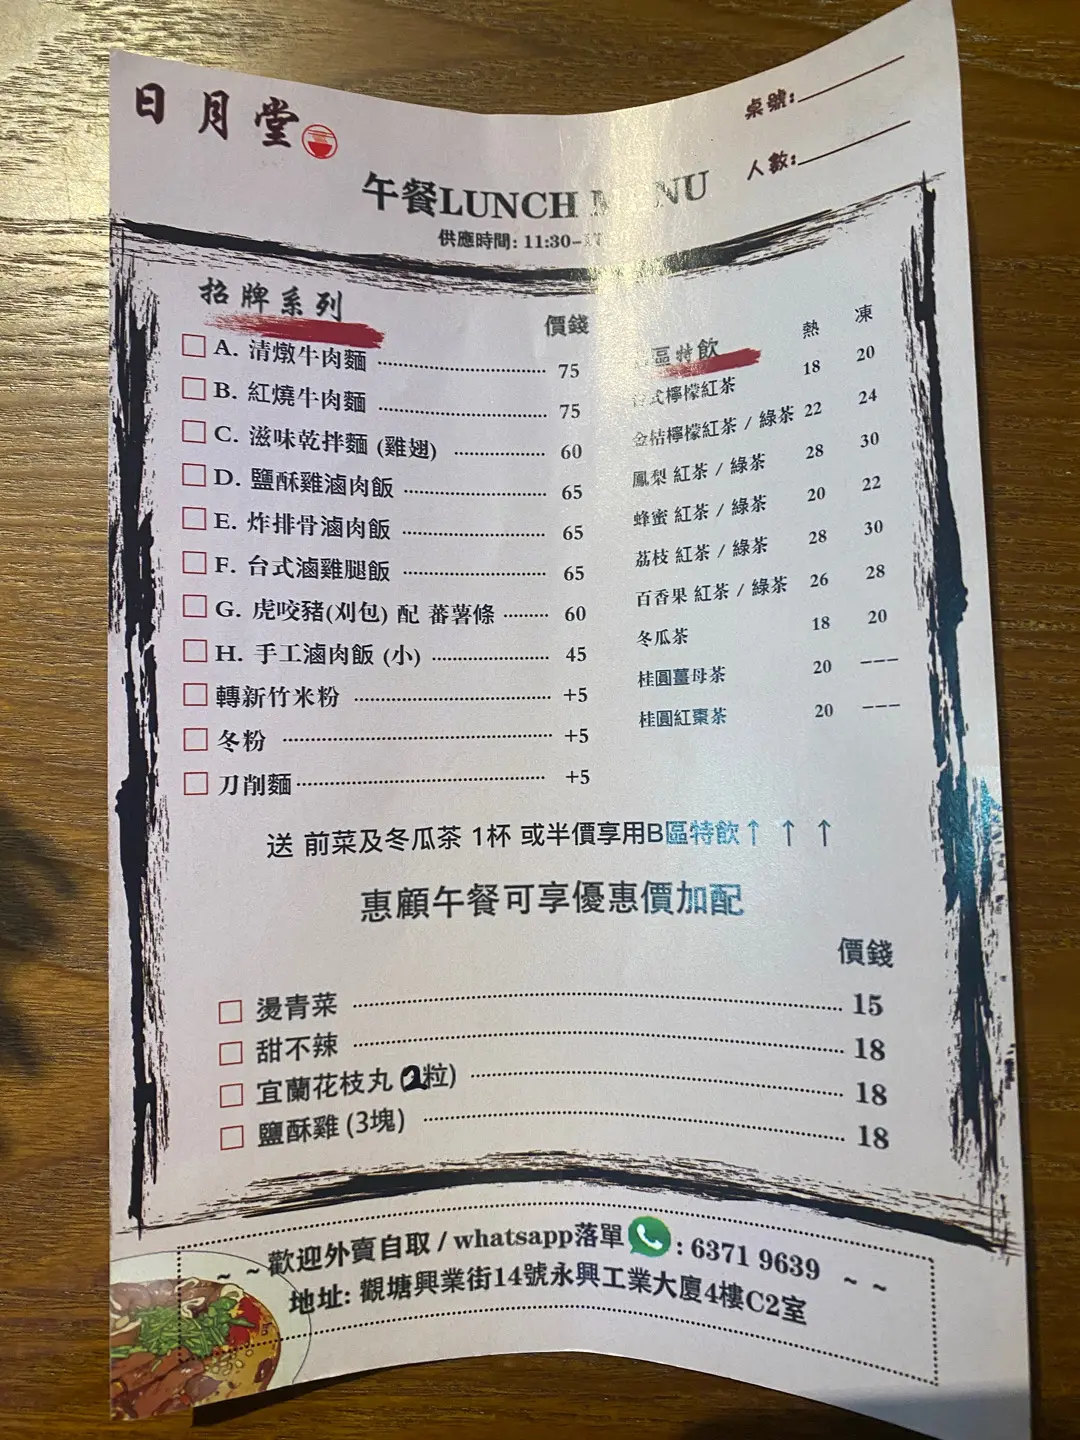 日月堂
桌號:
人數:
午餐LUNCH M NU
供應時間: 11:30-17
招牌系列
價錢
A. 清燉牛肉麵 75
B. 紅燒牛肉麵 75
C. 滋味乾拌麵 (雞翅) 60
D. 鹽酥雞滷肉飯 65
E. 炸排骨滷肉飯 65
F. 台式滷雞腿飯 65
G. 虎咬豬(刈包) 配 蕃薯條 60
H. 手工滷肉飯 (小) 45
轉新竹米粉 +5
冬粉 +5
刀削麵 +5
區特飲 熱 凍
式檸檬紅茶 18 20
金桔檸檬紅茶 / 綠茶 22 24
鳳梨 紅茶 / 綠茶 28 30
蜂蜜 紅茶 / 綠茶 20 22
荔枝 紅茶 / 綠茶 28 30
百香果 紅茶 / 綠茶 26 28
冬瓜茶 18 20
桂圓薑母茶 20 ---
桂圓紅棗茶 20 ---
送 前菜及冬瓜茶 1杯 或半價享用B區特飲↑ ↑ ↑
惠顧午餐可享優惠價加配
價錢
燙青菜 15
甜不辣 18
宜蘭花枝丸 (2粒) 18
鹽酥雞 (3塊) 18
~ ~歡迎外賣自取 / whatsapp落單 : 6371 9639 ~ ~
地址: 觀塘興業街14號永興工業大廈4樓C2室